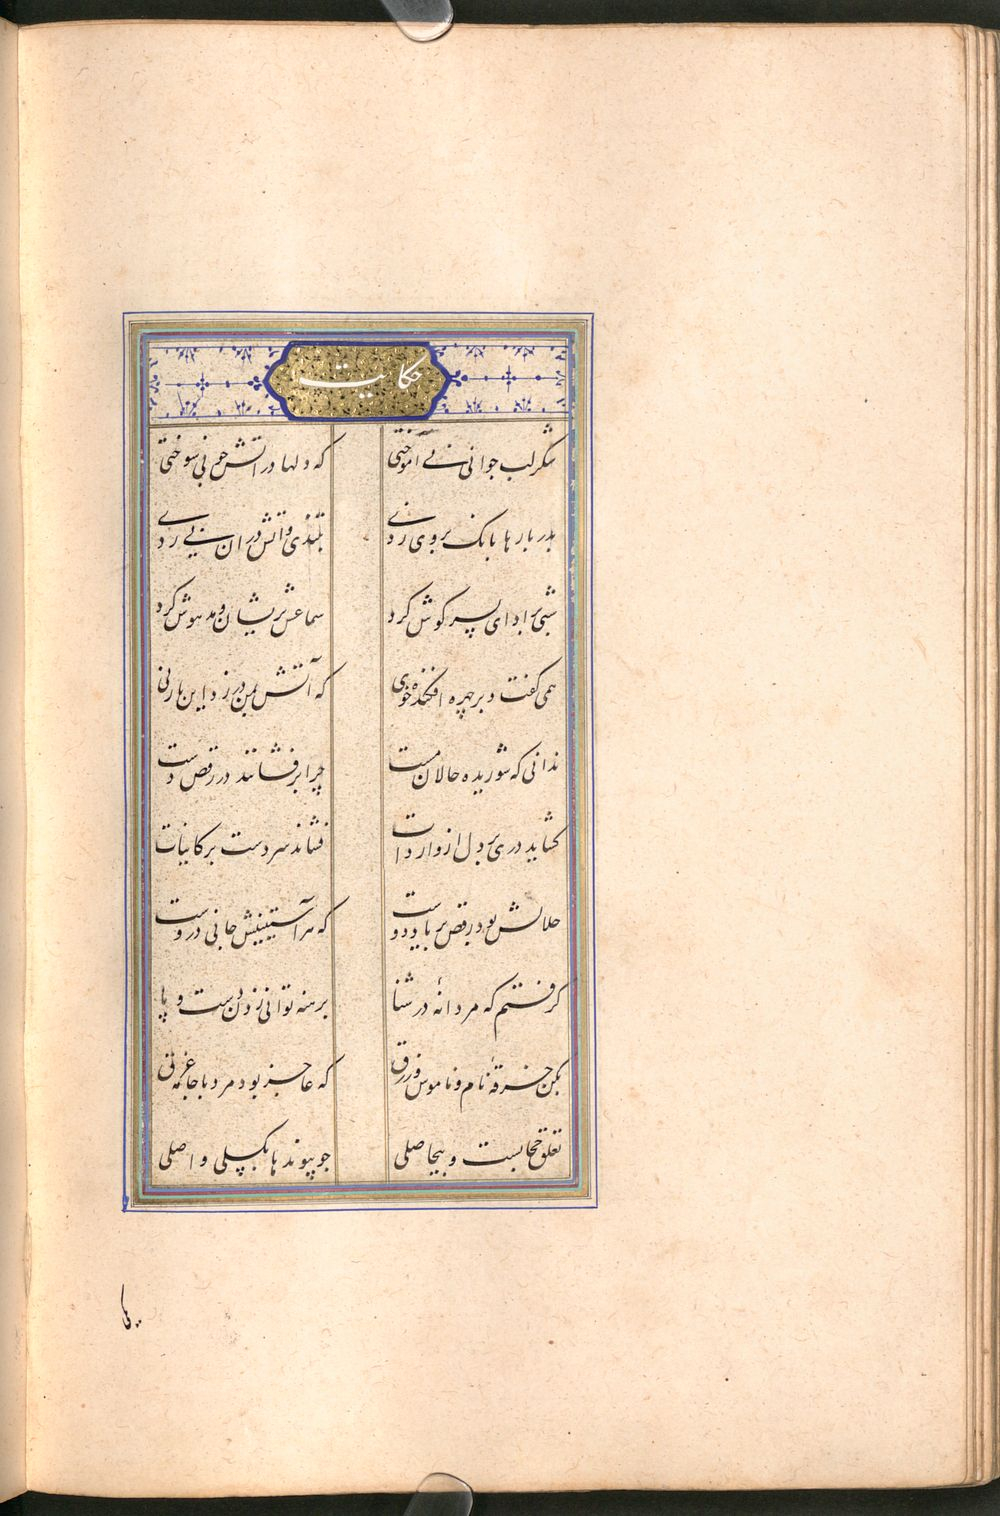 حکایت
شکر لب جوانی نی آموختی که دلها در آتش چو نی سوختی
پدر بارها بانک بر وی زدی بتندی و آتش در ان نی زدی
شبی بر ادای پسر گوش کرد سماعش پریشان و مدهوش کرد
همی گفت و بر چهره افکنده خوی که آتش بمن در زد این بار نی
ندانی که شوریده حالان مست چرا بر فشانند در رقص دست
کشاید دری بر دل از واردات فشاند سر دست بر کاینات
حلالش بود رقص بر یاد دوست که هر آستینیش جانی دروست
کرفتم که مردانه در شنا برهنه توانی زدن دست و پا
بکن خرقه نام و ناموس و زرق که عاجز بود مرد با جامه غرق
تعلق حجابست و بیحاصلی چو پیوندها بکسلی واصلی